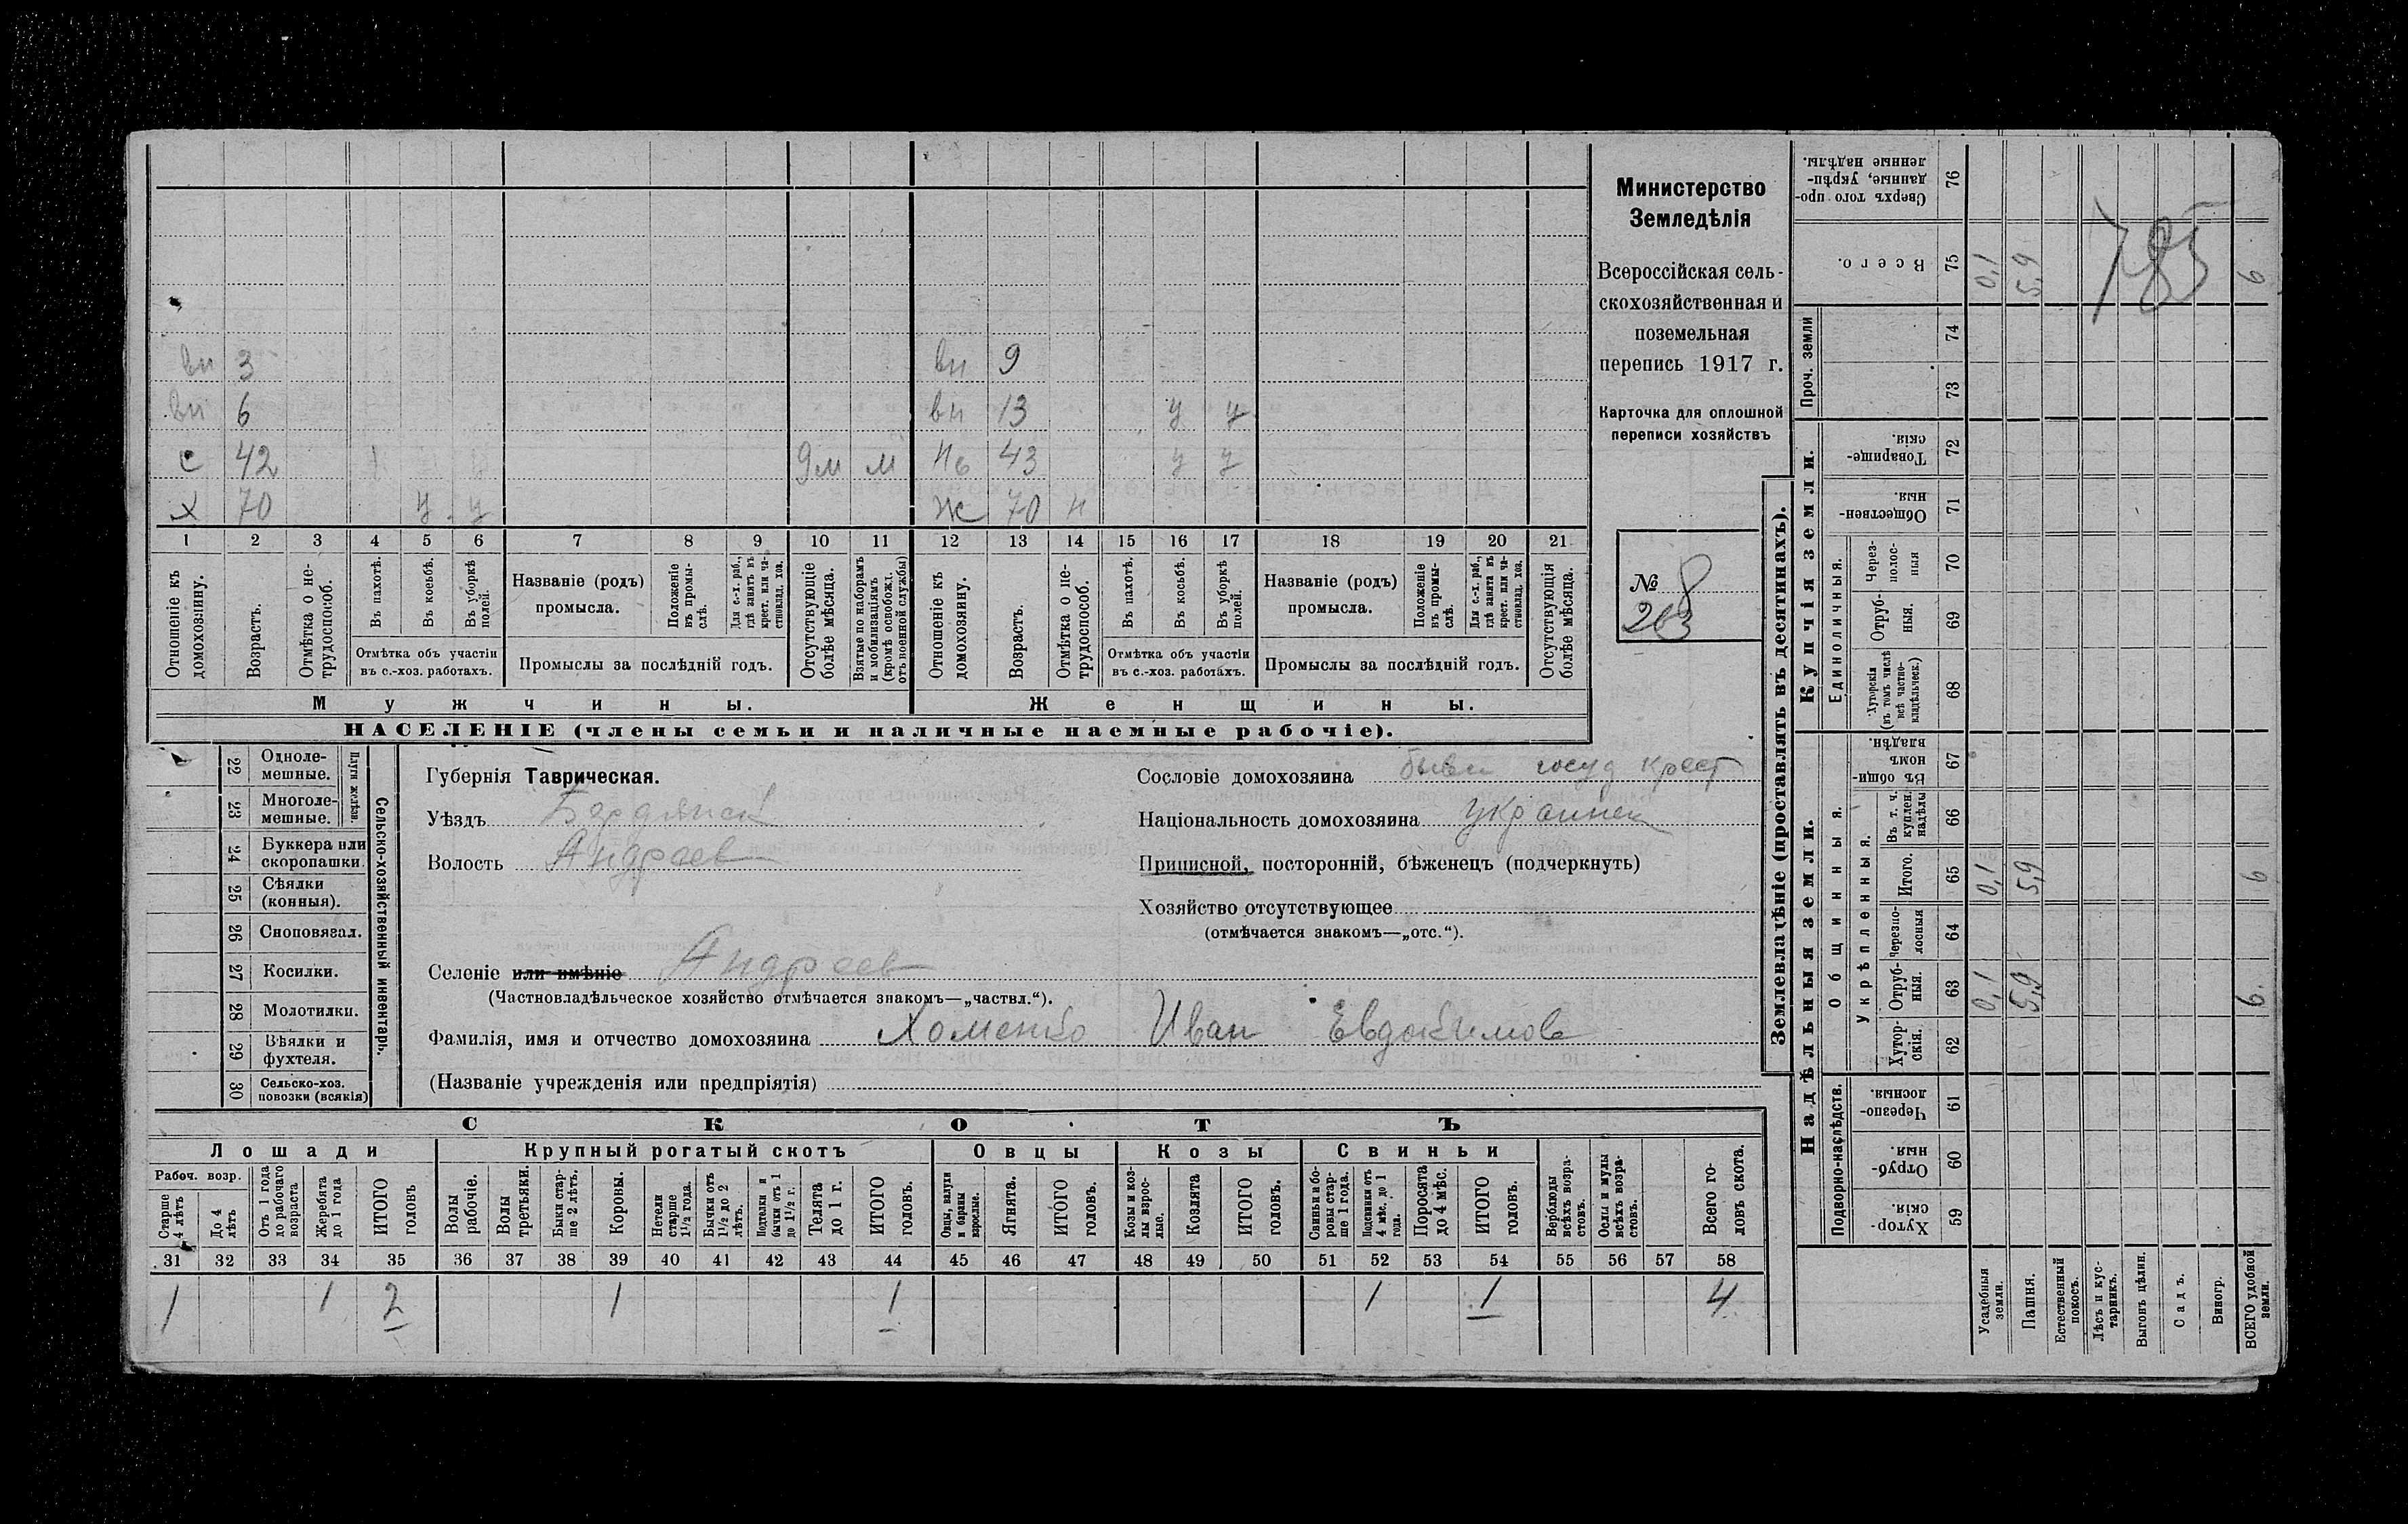 вн 3 вн 9
вн 6 вн 13 у у
с 42 9м м нв 43 у у
х 70 у у ж 70 н
1 2 3 4 5 6 7 8 9 10 11 12 13 14 15 16 17 18 19 20 21
Отношеніе къ домохозяину.
Возрастъ.
Отмѣтка о нетрудоспособ.
Въ пахотѣ.
Въ косьбѣ.
Въ уборкѣ полей.
Отмѣтка объ участіи въ с.-хоз. работахъ.
Названіе (родъ) промысла.
Положеніе въ промыслѣ.
Для с.-х. раб., гдѣ занятъ въ крест. или частновлад. хоз.
Промыслы за послѣдній годъ.
Отсутствующіе болѣе мѣсяца.
Взятые по наборамъ и мобилизаціямъ (кромѣ освобожд. отъ военной службы)
Отношеніе къ домохозяину.
Возрастъ.
Отмѣтка о нетрудоспособ.
Въ пахотѣ.
Въ косьбѣ.
Въ уборкѣ полей.
Отмѣтка объ участіи въ с.-хоз. работахъ.
Названіе (родъ) промысла.
Положеніе въ промыслѣ.
Для с.-х. раб., гдѣ занята въ крест. или частновлад. хоз.
Промыслы за послѣдній годъ.
Отсутствующія болѣе мѣсяца.
Мужчины. Женщины.
НАСЕЛЕНІЕ (члены семьи и наличные наемные рабочіе).
Министерство
Земледѣлія
Всероссійская сель-
скохозяйственная и
поземельная
перепись 1917 г.
Карточка для сплошной
переписи хозяйствъ
№ 8
263
Сельско-хозяйственный инвентарь.
Плуги желѣзн.
22 Однолемешные.
23 Многолемешные.
24 Буккера или скоропашки.
25 Сѣялки (конныя).
26 Сноповязал.
27 Косилки.
28 Молотилки.
29 Вѣялки и фухтеля.
30 Сельско-хоз. повозки (всякія)
Губернія Таврическая.
Уѣздъ Бердянск
Волость Андреев
Селеніе или имѣніе Андреев
(Частновладѣльческое хозяйство отмѣчается знакомъ—„частвл.“).
Фамилія, имя и отчество домохозяина Хоменко Иван Евдокимов
(Названіе учрежденія или предпріятія)
Сословіе домохозяина бывш госуд крест
Національность домохозяина украинец
Приписной, посторонній, бѣженецъ (подчеркнуть)
Хозяйство отсутствующее
(отмѣчается знакомъ—„отс.“).
СКОТЪ
Лошади Крупный рогатый скотъ Овцы Козы Свиньи
Рабоч. возр.
Старше 4 лѣтъ
До 4 лѣтъ
Отъ 1 года до рабочаго возраста
Жеребята до 1 года
ИТОГО головъ
Волы рабочіе.
Волы третьяки.
Быки старше 2 лѣтъ.
Коровы.
Нетели старше 1½ года.
Бычки отъ 1½ до 2 лѣтъ.
Подтелки и бычки отъ 1 до 1½ г.
Телята до 1 г.
ИТОГО головъ.
Овцы, валухи и бараны взрослые.
Ягнята.
ИТОГО головъ.
Козы и козлы взрослые.
Козлята
ИТОГО головъ.
Свиньи и боровы старше 1 года.
Подсвинки отъ 4 мѣс. до 1 года.
Поросята до 4 мѣс.
ИТОГО головъ.
Верблюды всѣхъ возрастовъ.
Ослы и мулы всѣхъ возрастовъ.
Всего головъ скота.
31 32 33 34 35 36 37 38 39 40 41 42 43 44 45 46 47 48 49 50 51 52 53 54 55 56 57 58
1 1 2 1 1 1 1 4
Землевладѣніе (проставлять въ десятинахъ).
Надѣльныя земли. Купчія земли. Проч. земли
Подворно-наслѣдств. Общинныя. Укрѣпленныя. Единоличныя.
59 Хуторскія.
60 Отрубныя.
61 Черезполосныя.
62 Хуторскія.
63 Отрубныя. 0,1 5,9 6.
64 Черезполосныя
65 Итого. 0,1 5,9 6
66 Въ т. ч. куплен. надѣлы
67 Въ общинномъ владѣн.
68 Хуторскія (въ томъ числѣ всѣ частновладѣльческ.)
69 Отрубныя.
70 Черезполосныя
71 Общественныя.
72 Товарищескія.
73
74
75 Всего. 0,1 5,9 6
76 Сверхъ того проданные, укрѣпленные надѣлы.
785
Усадебныя земли.
Пашня.
Естественный покосъ.
Лѣсъ и кустарникъ.
Выгонъ цѣлин.
Садъ.
Виногр.
ВСЕГО удобной земли.